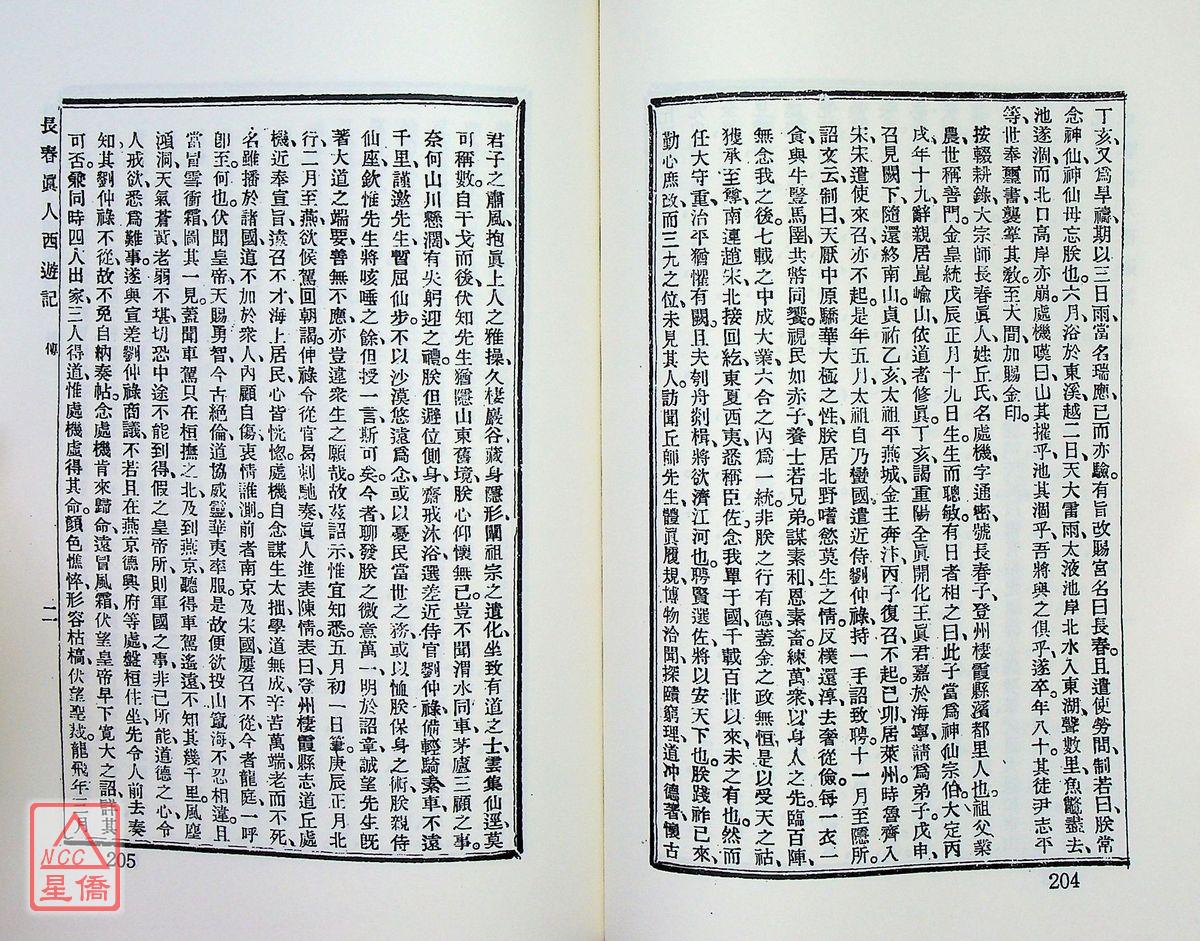 丁亥、又爲旱禱、期以三日雨、當名瑞應、已而亦驗。有旨改賜宮名曰長春、且遣使勞問、制若曰、朕常
念神仙、神仙毋忘朕也。六月、浴於東溪、越二日、天大雷雨、太液池岸北水入東湖、聲數里、魚鼈盡去、
池遂涸、而北口高岸亦崩、處機嘆曰、山其摧乎、池其涸乎、吾將與之俱乎、遂卒、年八十、其徒尹志平
等、世奉璽書、襲掌其教、至大間加賜金印。
按輟耕錄、大宗師長春眞人、姓丘氏、名處機、字通密、號長春子、登州棲霞縣濱都里人也。祖父業
農、世稱善門。金皇統戊辰正月十九日生、生而聰敏、有日者相之曰、此子當爲神仙宗伯。大定丙
戌、年十九、辭親居崑崳山、依道者修眞、丁亥、謁重陽全眞開化王眞君嘉於海寧、請爲弟子、戊申、
召見闕下、隨還終南山。貞祐乙亥、太祖平燕城、金主奔汴、丙子、復召不起、己卯、居萊州、時齊魯入
宋、宋遣使來召、亦不起、是年五月、太祖自乃蠻國遣近侍劉仲祿、持手詔致聘、十一月至隱所。
詔文云、制曰、天厭中原驕華大極之性、朕居北野嗜慾莫生之情、反樸還淳、去奢從儉、每一衣一
食、與牛豎馬圉、共幣同饗、視民如赤子、養士若兄弟、謀素和、恩素畜、練萬衆以身人之先、臨百陣
無念我之後、七載之中成大業、六合之內爲一統、非朕之行有德、蓋金之政無恒、是以受天之祜、
獲承至尊、南連趙宋、北接回紇、東夏西夷、悉稱臣佐、念我單于國千載百世以來、未之有也。然而
任大守重、治平猶懼有闕、且夫刳舟剡楫、將欲濟江河也。聘賢選佐、將以安天下也。朕踐祚已來、
勤心庶政、而三九之位、未見其人、訪聞丘師先生、體眞履規、博物洽聞、探賾窮理、道冲德著、懷古
204
君子之肅風、抱眞上人之雅操、久棲巖谷、藏身隱形、闡祖宗之遺化、坐致有道之士、雲集仙逕、莫
可稱數、自干戈而後、伏知先生猶隱山東舊境、朕心仰懷無已。豈不聞渭水同車、茅廬三顧之事、
奈何山川懸濶、有失躬迎之禮。朕但避位側身、齋戒沐浴、選差近侍官劉仲祿、備輕騎素車、不遠
千里、謹邀先生、暫屈仙步、不以沙漠悠遠爲念、或以憂民當世之務、或以恤朕保身之術、朕親侍
仙座、欽惟先生將咳唾之餘、但授一言、斯可矣。今者聊發朕之微意萬一、明於詔章、誠望先生既
著大道之端、要善無不應、亦豈違衆生之願哉。故茲詔示、惟宜知悉。五月初一日筆。庚辰正月北
行、二月至燕、欲候駕回朝謁、仲祿令從官曷剌馳奏、眞人進表陳情。表曰、登州棲霞縣志道丘處
機、近奉宣旨、遠召不才、海上居民、心皆恍惚、處機自念謀生太拙、學道無成、辛苦萬端、老而不死、
名雖播於諸國、道不加於衆人、內顧自傷、衷情誰測、前者南京及宋國屢召不從、今者龍庭一呼
卽至、何也。伏聞皇帝天賜勇智、今古絕倫、道協威靈、華夷率服、是故便欲投山竄海、不忍相違、且
當冒雪衝霜、圖其一見、蓋聞車駕只在桓撫之北、及到燕京、聽得車駕遙遠、不知其幾千里。風塵
澒洞、天氣蒼黃、老弱不堪、切恐中途不能到得、假之皇帝所、則軍國之事、非己所能、道德之心、令
人戒欲、悉爲難事。遂與宣差劉仲祿商議、不若且在燕京德興府等處、盤桓住坐、先令人前去奏
知、其劉仲祿不從、故不免自納奏帖、念處機肯來歸命、遠冒風霜、伏望皇帝早下寬大之詔、詳其
可否、兼同時四人出家、三人得道、惟處機虛得其命、顏色憔悴、形容枯槁、伏望聖裁、龍飛年三月
長春眞人西遊記　傳
二一
205
NCC
星僑